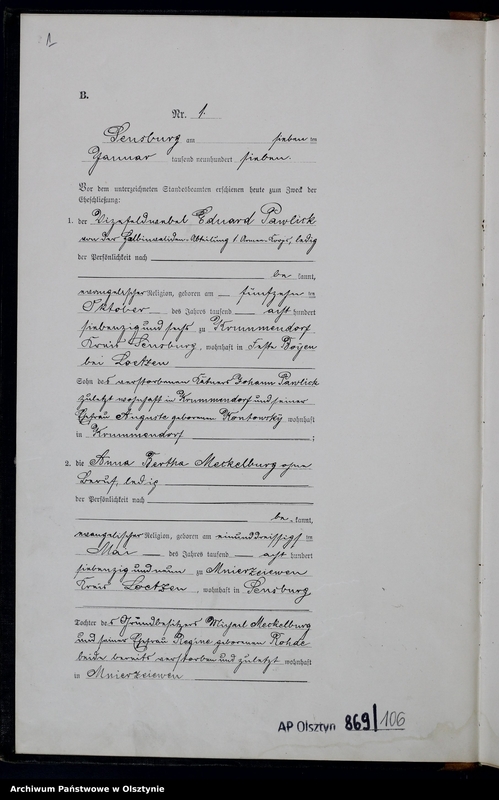 1
B.
Nr. 1.
Sensburg am sieben ten
Januar tausend neunhundert sieben.
Vor dem unterzeichneten Standesbeamten erschienen heute zum Zweck der
Eheschließung:
1. der Vizefeldwebel Eduard Pawlick
von der Halbinvaliden-Abteilung 1. Armee-Korps, ledig
der Persönlichkeit nach
be kannt,
evangelischer Religion, geboren am fünfzehn ten
Oktober des Jahres tausend acht hundert
siebenzig und sechs zu Krummendorf
Kreis Sensburg, wohnhaft in Feste Boyen
bei Loetzen
Sohn des verstorbenen Kätners Johann Pawlick
zuletzt wohnhaft in Krummendorf und seiner
Ehefrau Auguste geborenen wohnhaft
in Krummendorf ;
2. die Anna Bertha Meckelburg ohne
Beruf, ledig
der Persönlichkeit nach
be kannt,
evangelischer Religion, geboren am einunddreissigs ten
Mai des Jahres tausend acht hundert
siebenzig und neun zu Mnierzeiewen
Kreis Loetzen, wohnhaft in Sensburg
Tochter des Grundbesitzers Michael Meckelburg
und seiner Ehefrau Regine geborenen Rohde
beide bereits verstorben und zuletzt wohnhaft
in Mnierzeiewen
AP Olsztyn 869/106
Archiwum Państwowe w Olsztynie